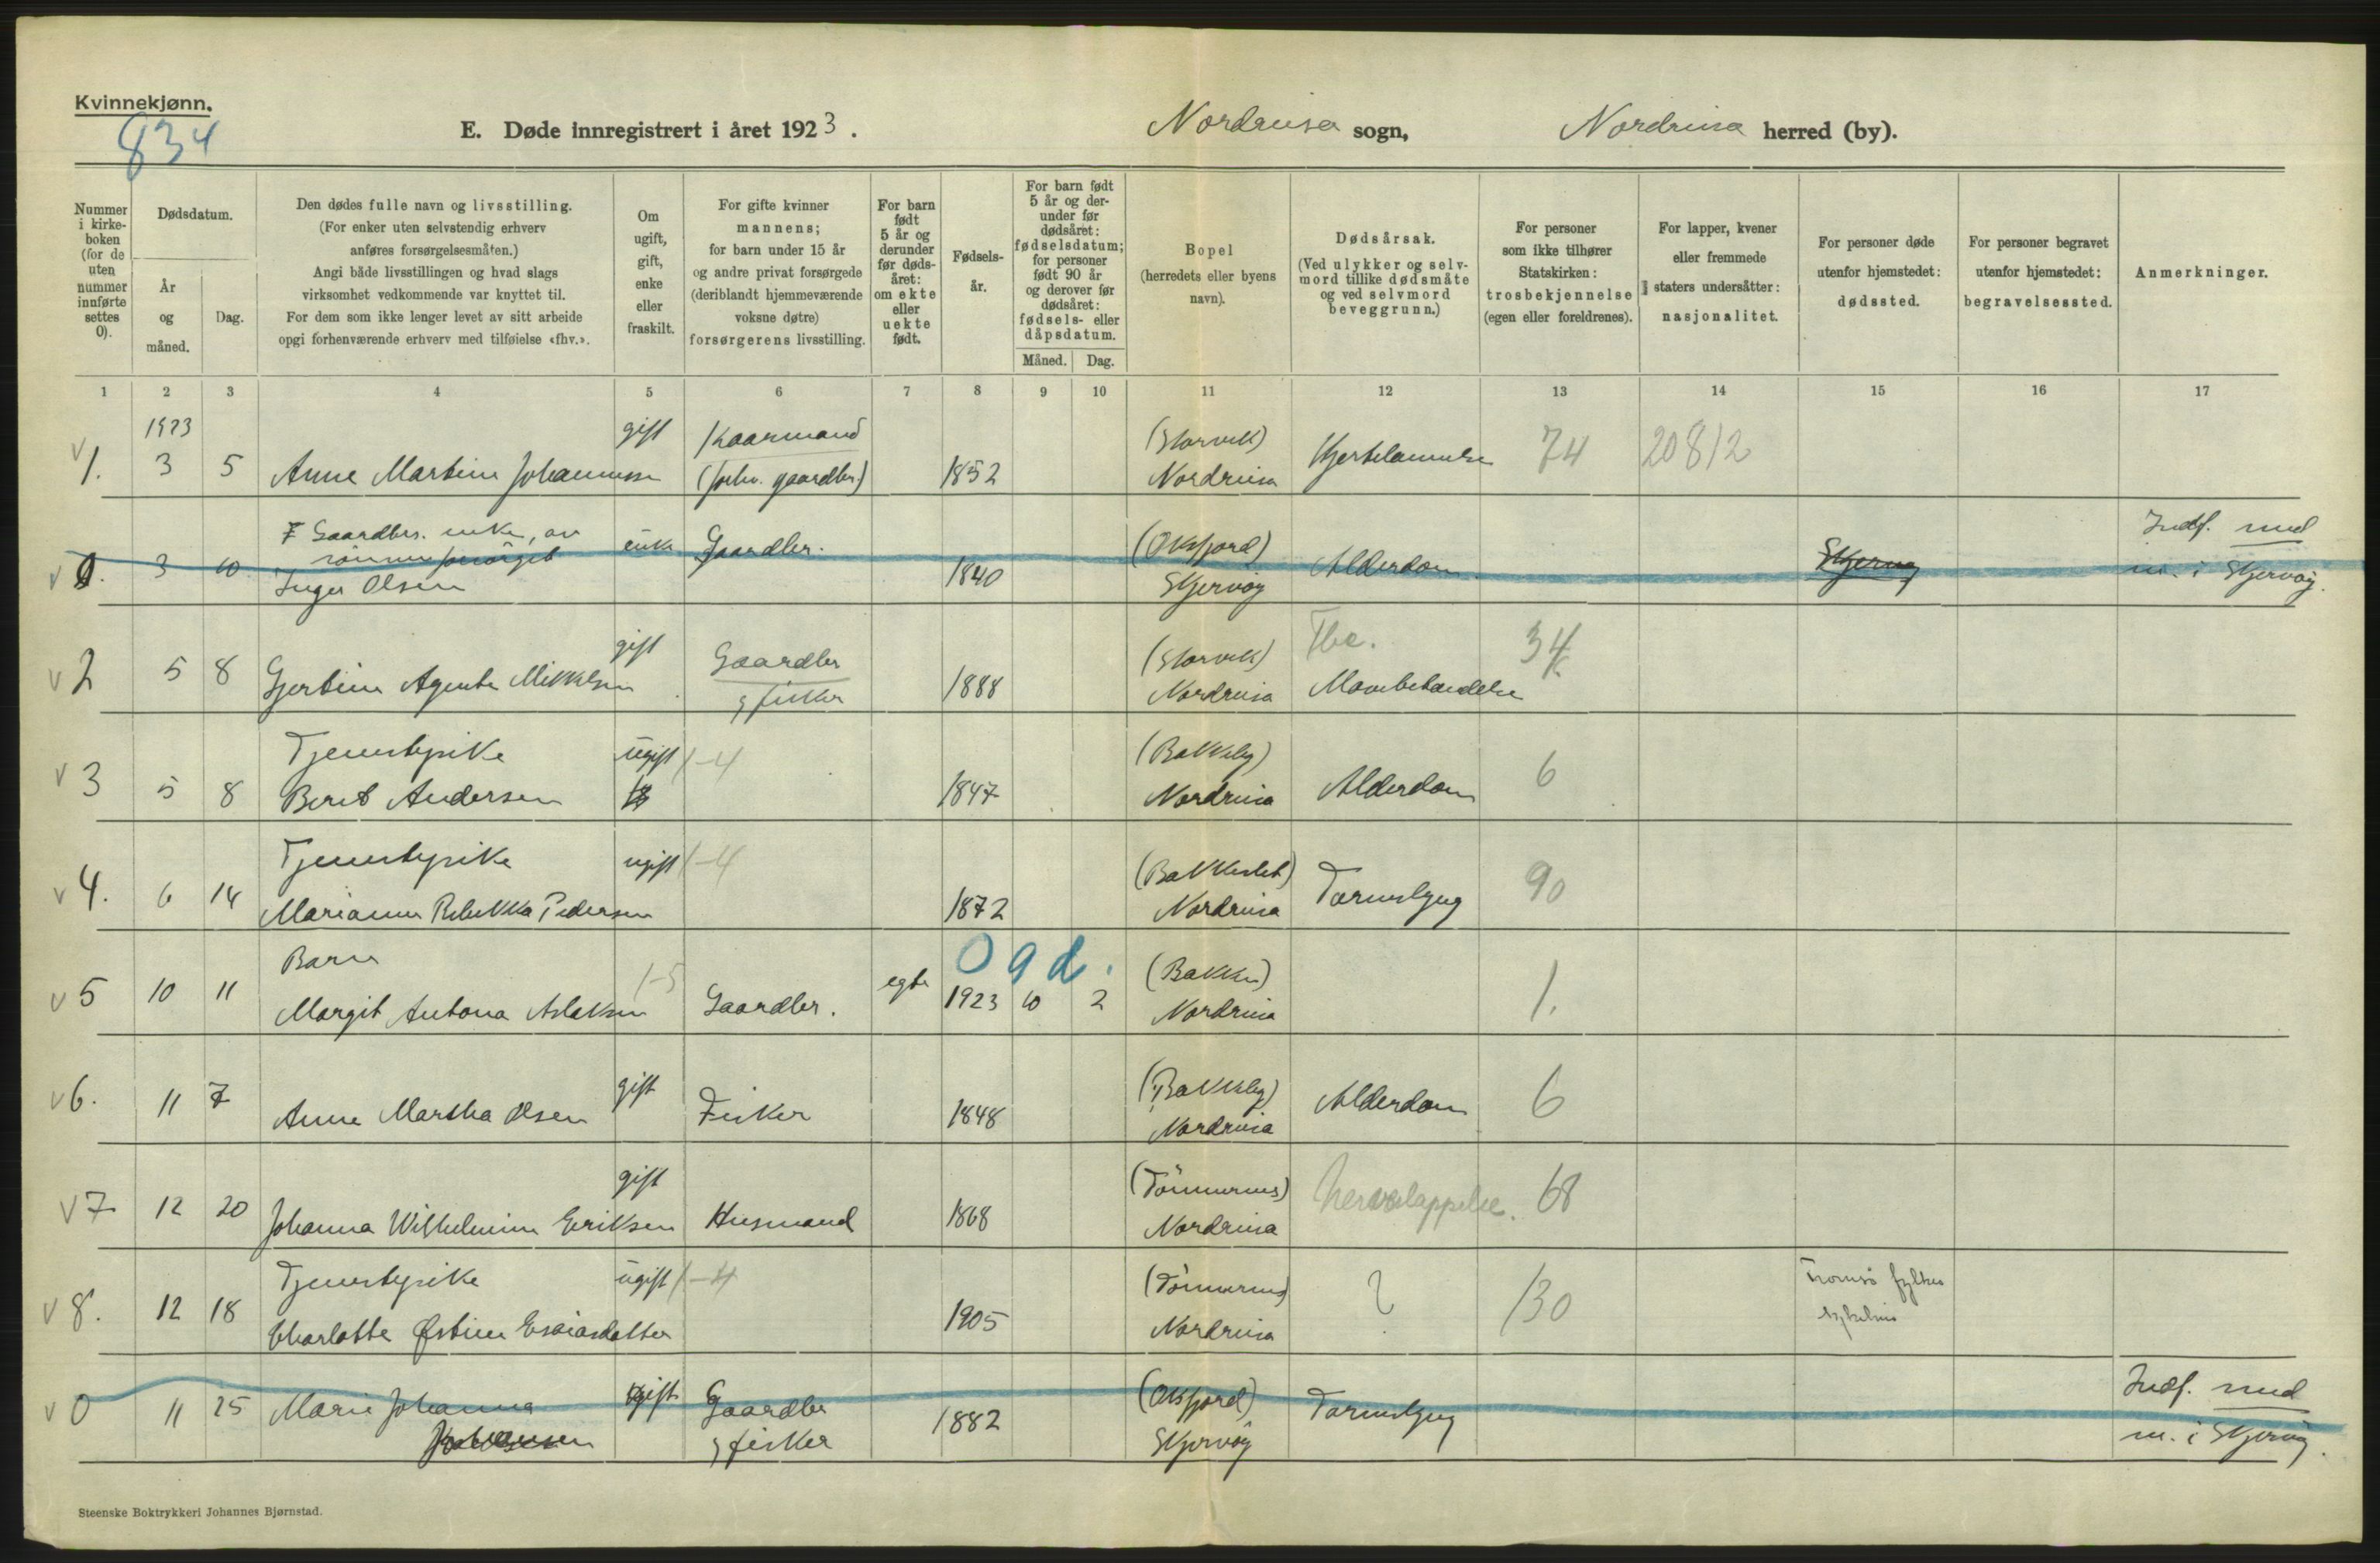 Kvinnekjønn.
834
E. Døde innregistrert i året 1923.
Nordreisa sogn,
Nordreisa herred (by).
Nummer i kirkeboken (for de uten nummer innførte settes 0).
Dødsdatum.
År og måned.
Dag.
Den dødes fulle navn og livsstilling.
(For enker uten selvstendig erhverv
anføres forsørgelsesmåten.)
Angi både livsstillingen og hvad slags
virksomhet vedkommende var knyttet til.
For dem som ikke lenger levet av sitt arbeide
opgi forhenværende erhverv med tilføielse «fhv.».
Om
ugift,
gift,
enke
eller
fraskilt.
For gifte kvinner
mannens;
for barn under 15 år
og andre privat forsørgede
(deriblandt hjemmeværende
voksne døtre)
forsørgerens livsstilling.
For barn
født
5 år og
derunder
før døds-
året:
om ekte
eller
uekte
født.
Fødsels-
år.
For barn født
5 år og der-
under før
dødsåret:
fødselsdatum;
for personer
født 90 år
og derover før
dødsåret:
fødsels- eller
dåpsdatum.
Måned.
Dag.
Bopel
(herredets eller byens
navn).
Dødsårsak.
(Ved ulykker og selv-
mord tillike dødsmåte
og ved selvmord
beveggrunn.)
For personer
som ikke tilhører
Statskirken:
trosbekjennelse
(egen eller foreldrenes).
For lapper, kvener
eller fremmede
staters undersåtter:
nasjonalitet.
For personer døde
utenfor hjemstedet:
dødssted.
For personer begravet
utenfor hjemstedet:
begravelsessted.
Anmerkninger.
1 2 3 4 5 6 7 8 9 10 11 12 13 14 15 16 17
1923
v 1. 3 5 Anne Martine Johannessen gift Kaarmand
(forhv. gaardbr.) 1852 (Storvik)
Nordreisa Hjertelammelse 74 20812
v 0. 3 10 Gaardbrs. enke, av
sönnen forsörget
Inger Olsen enke Gaardbr. 1840 (Oksfjord)
Skjervöy Alderdom Skjervøy Indf. med
m. i Skjervöy.
v 2 5 8 Gjertine Agente Mikkelsen gift Gaardbr
& fisker 1888 (Storvik)
Nordreisa Tbc.
34
v 3 5 8 Tjenestepike
Berit Andersen ugift 1-4 1847 (Bakkeby)
Nordreisa Alderdom 6
v 4. 6 14 Tjenestepike
Marianne Rebekka Pedersen ugift 1-4 1872 (Bakkeslet)
Nordreisa Tarmslyng 90
v 5 10 11 Barn
Margit Antona Aslaksen 1-5 Gaardbr. egte 1923 10 2 (Bakken)
Nordreisa 1.
0 9 d.
v 6. 11 7 Anne Martha Olsen gift Fisker 1848 (Bakkeby)
Nordreisa Alderdom 6
v 7 12 20 Johanna Wilhelmine Eriksen gift Husmand 1868 (Sönmernes)
Nordreisa 68
v 8. 12 18 Tjenestepike
Charlotte Østine Esaiasdatter ugift 1-4 1905
Nordreisa ? 130 Tromsö fylkes
sykehus
v 0 11 25 Marie Johanna
Johansen gift Gaardbr
& fisker 1882 (Oksfjord)
Skjervöy Tarmslyng Indf. med
m. i Skjervöy.
Steenske Boktrykkeri Johannes Bjørnstad.